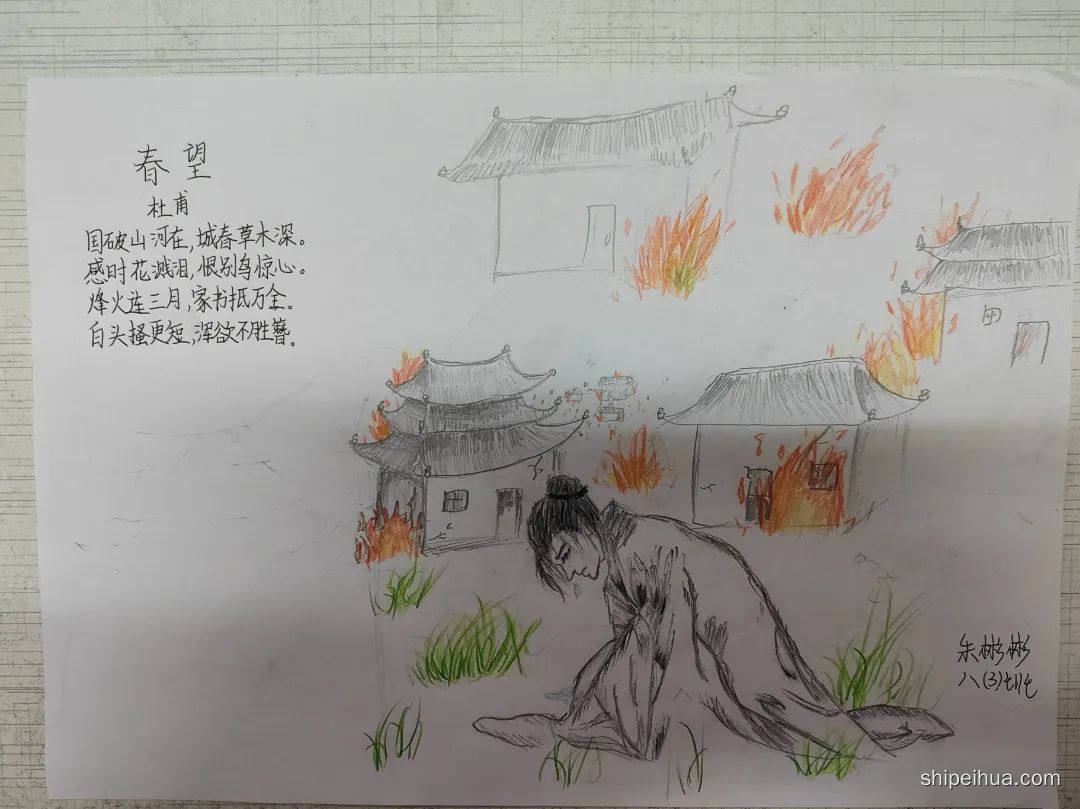 春望
杜甫
国破山河在,城春草木深。
感时花溅泪,恨别鸟惊心。
烽火连三月,家书抵万金。
白头搔更短,浑欲不胜簪。
朱彬彬
八(3)班
shipeihua.com